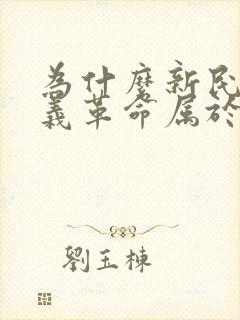 为什麼新民
義革命属於
劉玉棟